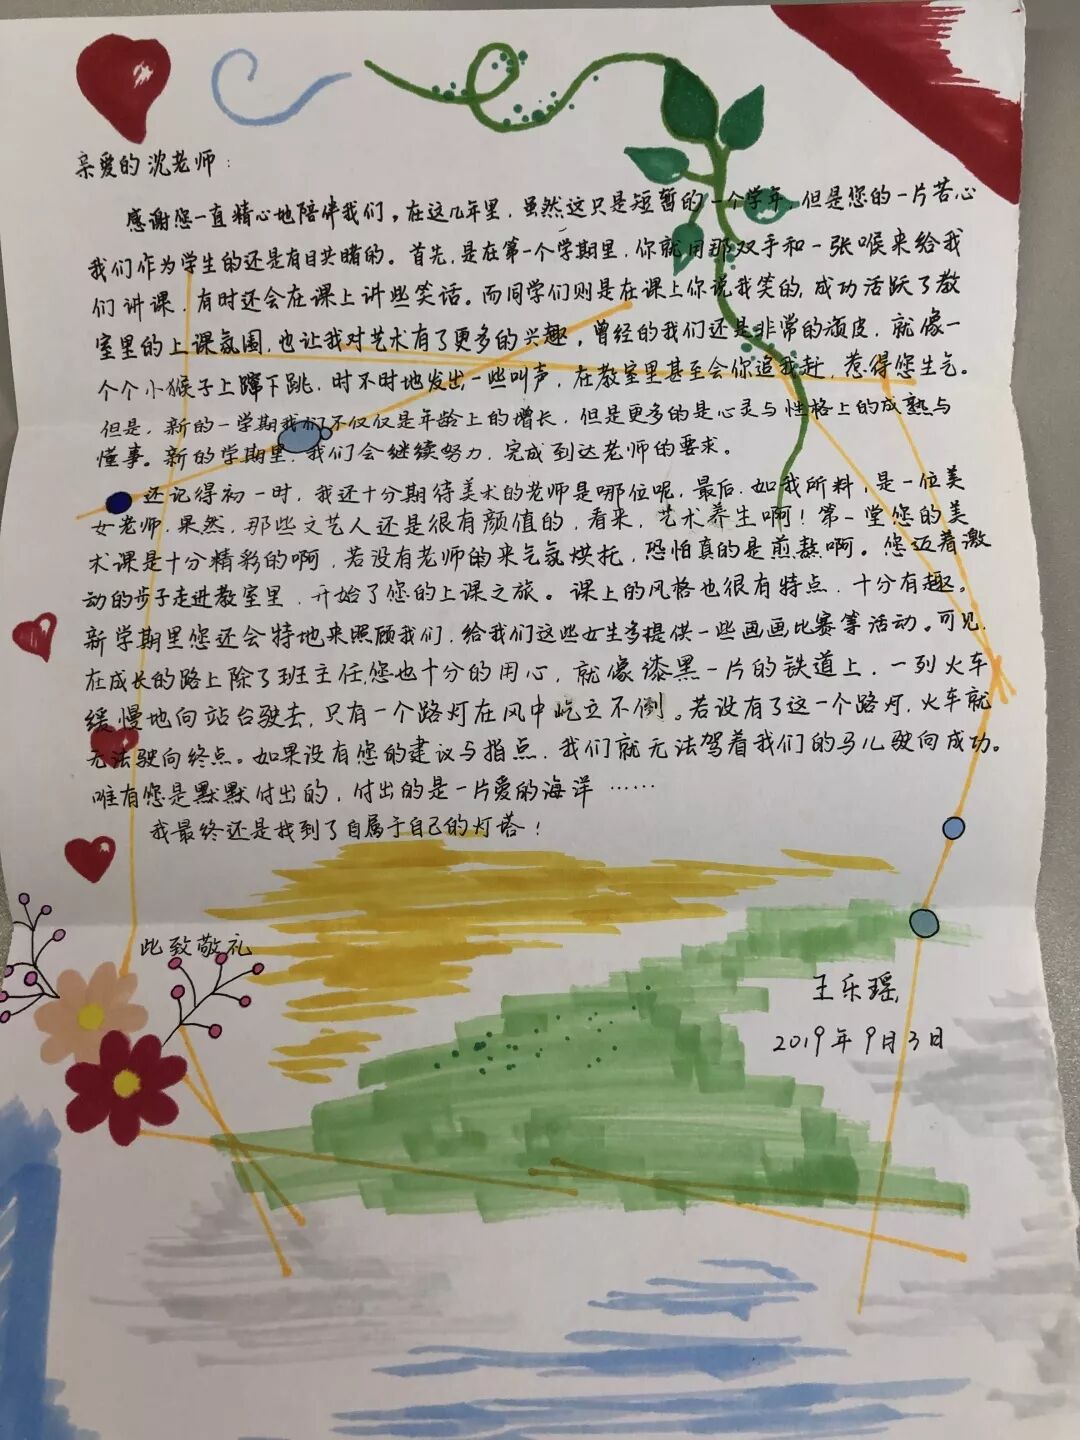 亲爱的沈老师：
感谢您一直精心地陪伴我们。在这几年里，虽然这只是短暂的一个学年，但是您的一片苦心
我们作为学生的还是有目共睹的。首先，是在第一个学期里，你就用那双手和一张喉来给我
们讲课，有时还会在课上讲些笑话。而同学们则是在课上你说我笑的，成功活跃了教
室里的上课氛围，也让我对艺术有了更多的兴趣。曾经的我们还是非常的顽皮，就像一
个个小猴子上蹿下跳，时不时地发出一些叫声，在教室里甚至会你追我赶，惹得您生气。
但是，新的一学期我们不仅仅是年龄上的增长，但是更多的是心灵与性格上的成熟与
懂事。新的学期里，我们会继续努力，完成到达老师的要求。
还记得初一时，我还十分期待美术的老师是哪位呢，最后，如我所料，是一位美
女老师，果然，那些文艺人还是很有颜值的，看来，艺术养生啊！第一堂您的美
术课是十分精彩的啊，若没有老师的来气氛烘托，恐怕真的是煎熬啊。您迈着激
动的步子走进教室里，开始了您的上课之旅。课上的风格也很有特点，十分有趣。
新学期里您还会特地来照顾我们，给我们这些女生多提供一些画画比赛等活动。可见，
在成长的路上除了班主任，您也十分的用心，就像漆黑一片的铁道上，一列火车
缓慢地向站台驶去，只有一个路灯在风中屹立不倒。若没有了这一个路灯，火车就
无法驶向终点。如果没有您的建议与指点，我们就无法驾着我们的马儿驶向成功。
唯有您是默默付出的，付出的是一片爱的海洋……
我最终还是找到了自属于自己的灯塔！
此致敬礼
王乐瑶
2019年9月3日